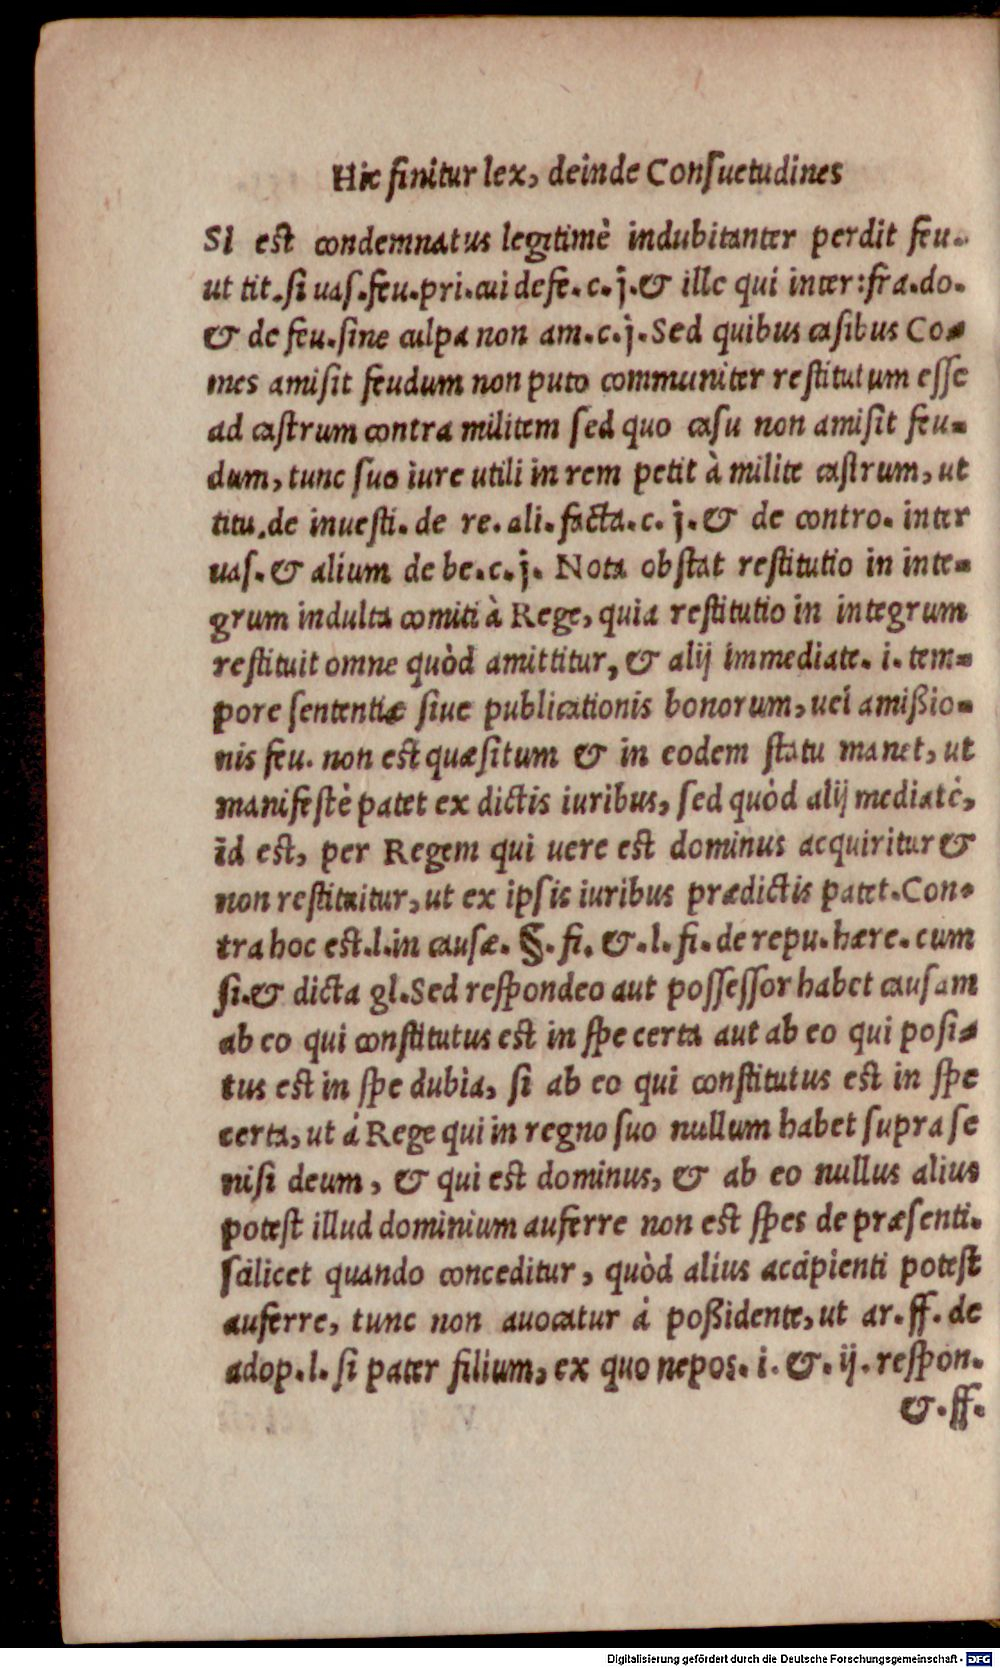 Hic finitur lex, deinde Consuetudines
SI est condemnatus legitimè indubitanter perdit feu.
ut tit. si uas. feu. pri. cui de fe. c. j. & ille qui inter: fra. do.
& de feu. sine culpa non am. c. j. Sed quibus casibus Co-
mes amisit feudum non puto communiter restitutum esse
ad castrum contra militem sed quo casu non amisit feu-
dum, tunc suo iure utili in rem petit à milite castrum, ut
titu. de inuesti. de re. ali. facta. c. j. & de contro. inter
uas. & alium de be. c. j. Nota obstat restitutio in inte-
grum indulta comiti à Rege, quia restitutio in integrum
restituit omne quòd amittitur, & alij immediate. i. tem-
pore sententiæ siue publicationis bonorum, uel amißio-
nis feu. non est quæsitum & in eodem statu manet, ut
manifestè patet ex dictis iuribus, sed quòd alij mediatè,
id est, per Regem qui uere est dominus acquiritur &
non restituitur, ut ex ipsis iuribus prædictis patet. Con-
tra hoc est. l. in causæ. §. fi. &. l. fi. de repu. hære. cum
si. & dicta gl. Sed respondeo aut possessor habet causam
ab eo qui constitutus est in spe certa aut ab eo qui posi-
tus est in spe dubia, si ab eo qui constitutus est in spe
certa, ut á Rege qui in regno suo nullum habet supra se
nisi deum, & qui est dominus, & ab eo nullus alius
potest illud dominium auferre non est spes de præsenti.
scilicet quando conceditur, quòd alius accipienti potest
auferre, tunc non auocatur á poßidente, ut ar. ff. de
adop. l. si pater filium, ex quo nepos. i. &. ij. respon.
&. ff.
Digitalisierung gefördert durch die Deutsche Forschungsgemeinschaft - DFG